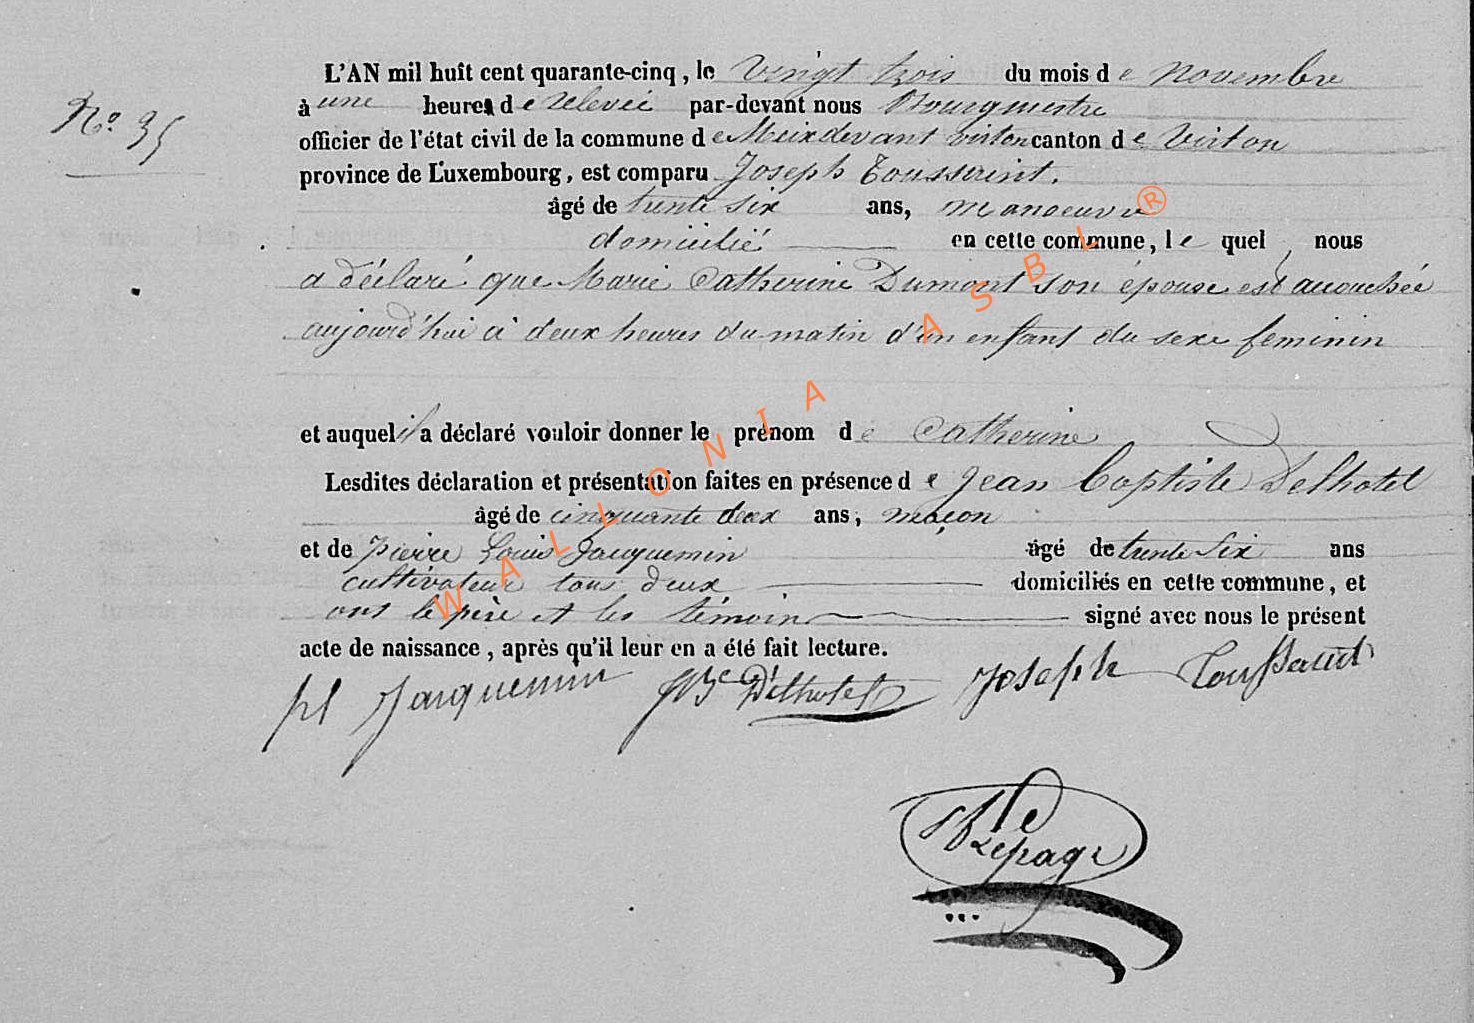 L'AN mil huit cent quarante-cinq, le vingt trois du mois de Novembre
à une heure de relevée par-devant nous Bourgmestre
No. 35
officier de l'état civil de la commune de Meix devant virton canton de Virton
province de Luxembourg, est comparu Joseph Toussaint.
âgé de trente six ans, manoeuvre
domicilié en cette commune, le quel nous
a déclaré que Marie Catherine Dumont son épouse est accouchée
aujourd'hui à deux heures du matin d'un enfant du sexe feminin
et auquel il a déclaré vouloir donner le prénom de Catherine
Lesdites déclaration et présentation faites en présence de Jean Baptiste Delhotel
âgé de cinquante deux ans, maçon
et de Pierre Louis Jacquemin âgé de trente six ans
cultivateur tous deux domiciliés en cette commune, et
ont le père et les témoins signé avec nous le présent
acte de naissance, après qu'il leur en a été fait lecture.
pl Jacquemin JBte Delhotel Joseph Toussaint
Lepage
WALLONIA ASBL ®